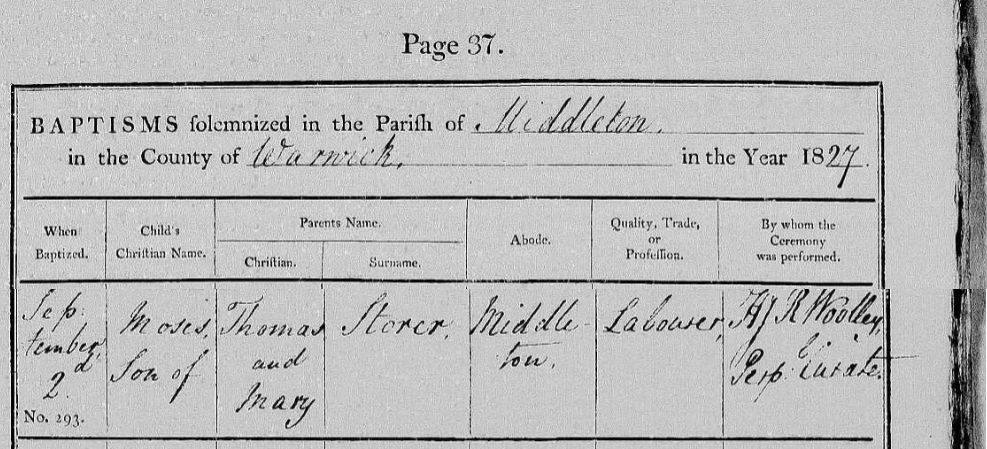 Page 37.
BAPTISMS solemnized in the Parish of Middleton.
in the County of Warwick. in the Year 1827.
When Baptized.
Child's Christian Name.
Parents Name.
Christian.
Surname.
Abode.
Quality, Trade, or Profession.
By whom the Ceremony was performed.
Sep:
tember,
2d
No. 293.
Moses,
Son of
Thomas
and
Mary
Storer,
Middle-
ton.
Labourer,
R Woolley,
Perp: Curate.